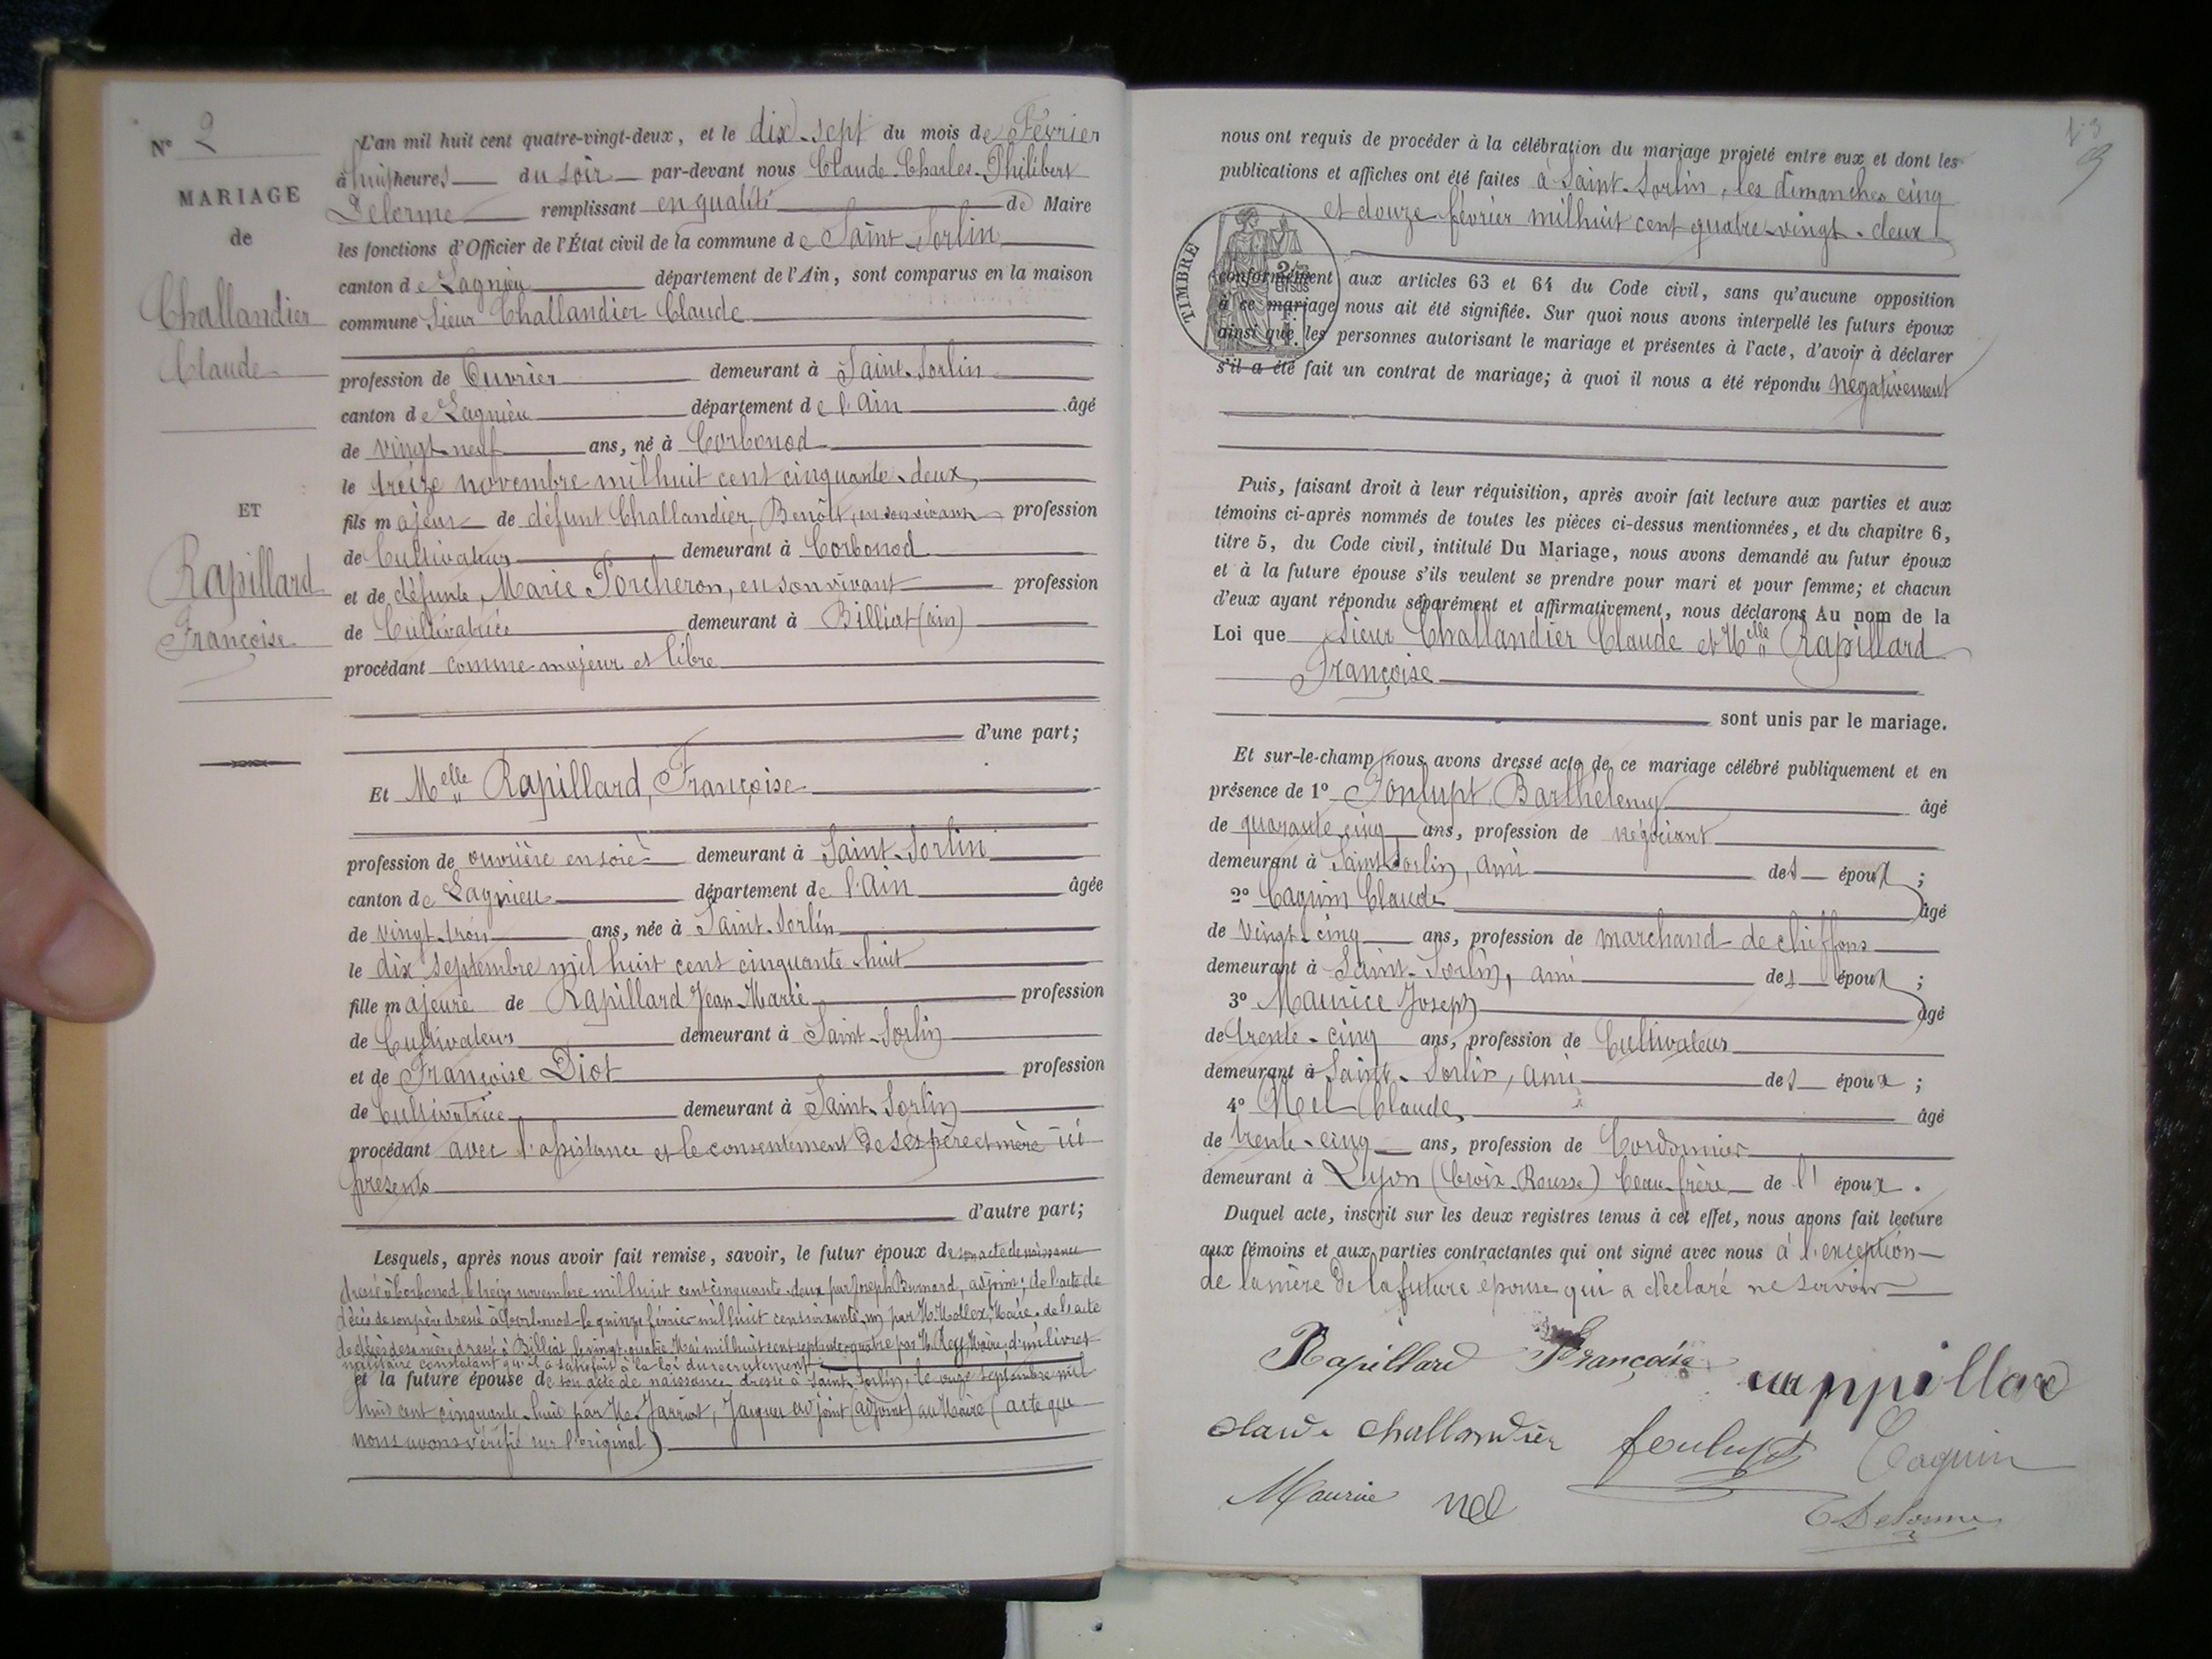 N° 2
MARIAGE
de
Challandier
Claude
ET
Rapillard
Françoise
L'an mil huit cent quatre-vingt-deux, et le dix-sept du mois de Février
à huit heures du soir par-devant nous Claude-Charles-Philibert
Delorme remplissant en qualité de Maire
les fonctions d'Officier de l'État civil de la commune de Saint-Sorlin
canton de Lagnieu département de l'Ain, sont comparus en la maison
commune Sieur Challandier Claude
profession de Ouvrier demeurant à Saint-Sorlin
canton de Lagnieu département de l'Ain âgé
de vingt-neuf ans, né à Corbonod
le treize novembre mil huit cent cinquante-deux
fils majeur de défunt Challandier, Benoît, en son vivant profession
de Cultivateur demeurant à Corbonod
et de défunte, Marie Porcheron, en son vivant profession
de Cultivatrice demeurant à Billiat (ain)
procédant comme majeur et libre
d'une part;
Et Melle Rapillard, Françoise
profession de ouvrière en soie demeurant à Saint-Sorlin
canton de Lagnieu département de l'Ain âgée
de vingt-trois ans, née à Saint-Sorlin
le dix septembre mil huit cent cinquante-huit
fille majeure de Rapillard Jean-Marie profession
de Cultivateur demeurant à Saint-Sorlin
et de Françoise Diot profession
de Cultivatrice demeurant à Saint-Sorlin
procédant avec l'assistance et le consentement de ses père et mère ici
présents
d'autre part;
Lesquels, après nous avoir fait remise, savoir, le futur époux de son acte de naissance
dressé à Corbonod, le treize novembre mil huit cent cinquante-deux par Joseph Burnard, adjoint; de l'acte de
décès de son père dressé à Corbonod le quinze février mil huit cent soixante un par M. Mollex, Maire, de l'acte
de décès de sa mère dressé à Billiat, le vingt-quatre Mai mil huit cent septante-quatre par M. Rey, Maire, d'un livret
militaire constatant qu'il a satisfait à la loi du recrutement;
et la future épouse de son acte de naissance dressé à Saint-Sorlin, le onze septembre mil
huit cent cinquante-huit par M. Jarriot, Jacques adjoint (adjoint) au Maire (acte que
nous avons vérifié sur l'original)
9
nous ont requis de procéder à la célébration du mariage projeté entre eux et dont les
publications et affiches ont été faites à Saint-Sorlin, les dimanches cinq
et douze février mil huit cent quatre-vingt-deux
TIMBRE
conformément aux articles 63 et 64 du Code civil, sans qu'aucune opposition
à ce mariage nous ait été signifiée. Sur quoi nous avons interpellé les futurs époux
ainsi que les personnes autorisant le mariage et présentes à l'acte, d'avoir à déclarer
s'il a été fait un contrat de mariage; à quoi il nous a été répondu négativement
Puis, faisant droit à leur réquisition, après avoir fait lecture aux parties et aux
témoins ci-après nommés de toutes les pièces ci-dessus mentionnées, et du chapitre 6,
titre 5, du Code civil, intitulé Du Mariage, nous avons demandé au futur époux
et à la future épouse s'ils veulent se prendre pour mari et pour femme; et chacun
d'eux ayant répondu séparément et affirmativement, nous déclarons Au nom de la
Loi que Sieur Challandier Claude et Melle Rapillard
Françoise
sont unis par le mariage.
Et sur-le-champ nous avons dressé acte de ce mariage célébré publiquement et en
présence de 1° Fonlupt Barthélemy âgé
de quarante-cinq ans, profession de négociant
demeurant à Saint-Sorlin, ami des époux ;
2° Caquin Claude âgé
de vingt-cinq ans, profession de marchand de chiffons
demeurant à Saint-Sorlin, ami des époux ;
3° Maurice Joseph âgé
de trente-cinq ans, profession de Cultivateur
demeurant à Saint-Sorlin, ami des époux ;
4° Nel Claude âgé
de trente-cinq ans, profession de Cordonnier
demeurant à Lyon (Croix-Rousse) beau-frère de l'époux.
Duquel acte, inscrit sur les deux registres tenus à cet effet, nous avons fait lecture
aux témoins et aux parties contractantes qui ont signé avec nous à l'exception
de la mère de la future épouse qui a déclaré ne savoir
Rapillard Françoise rappillard
claude challandier fonlupt Caquin
Maurice nel
C Delorme